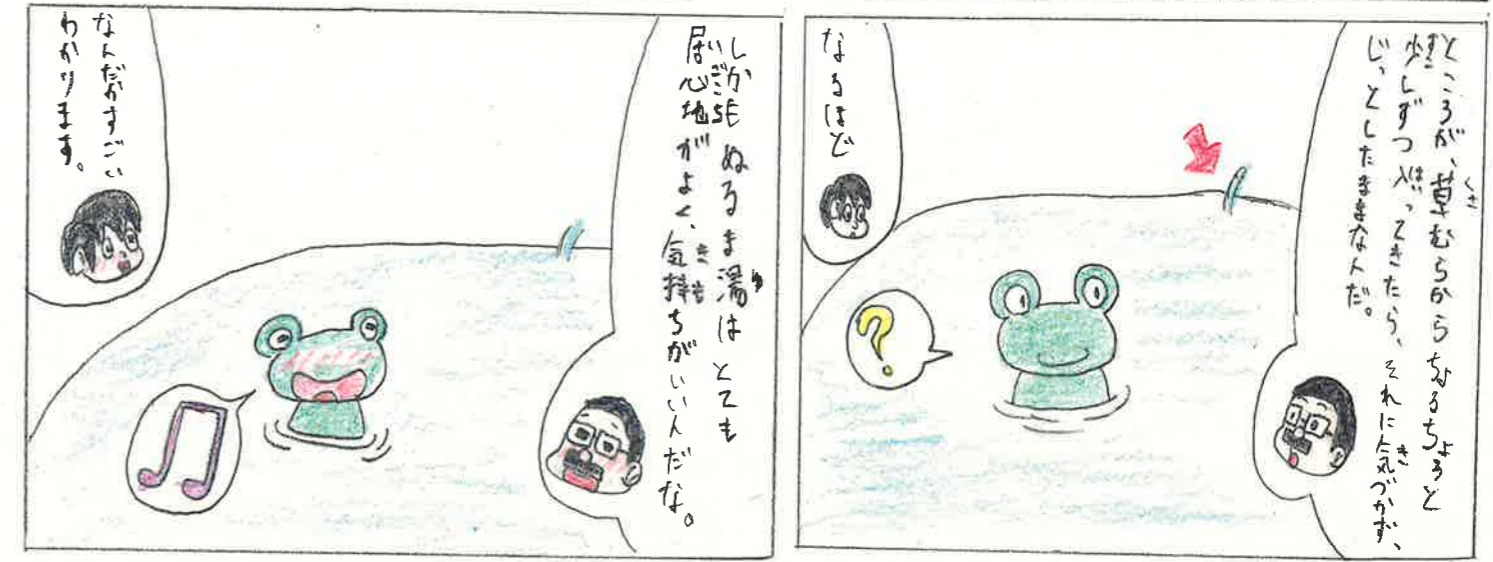 ところが、草むらから ちょろちょろと
少しずつ 入ってきたら、それに気づかず、
じっとしたままなんだ。
なるほど
?
しかも ぬるま湯は とても
居心地がよく、気持ちがいいんだな。
なんだかすごい
わかります。